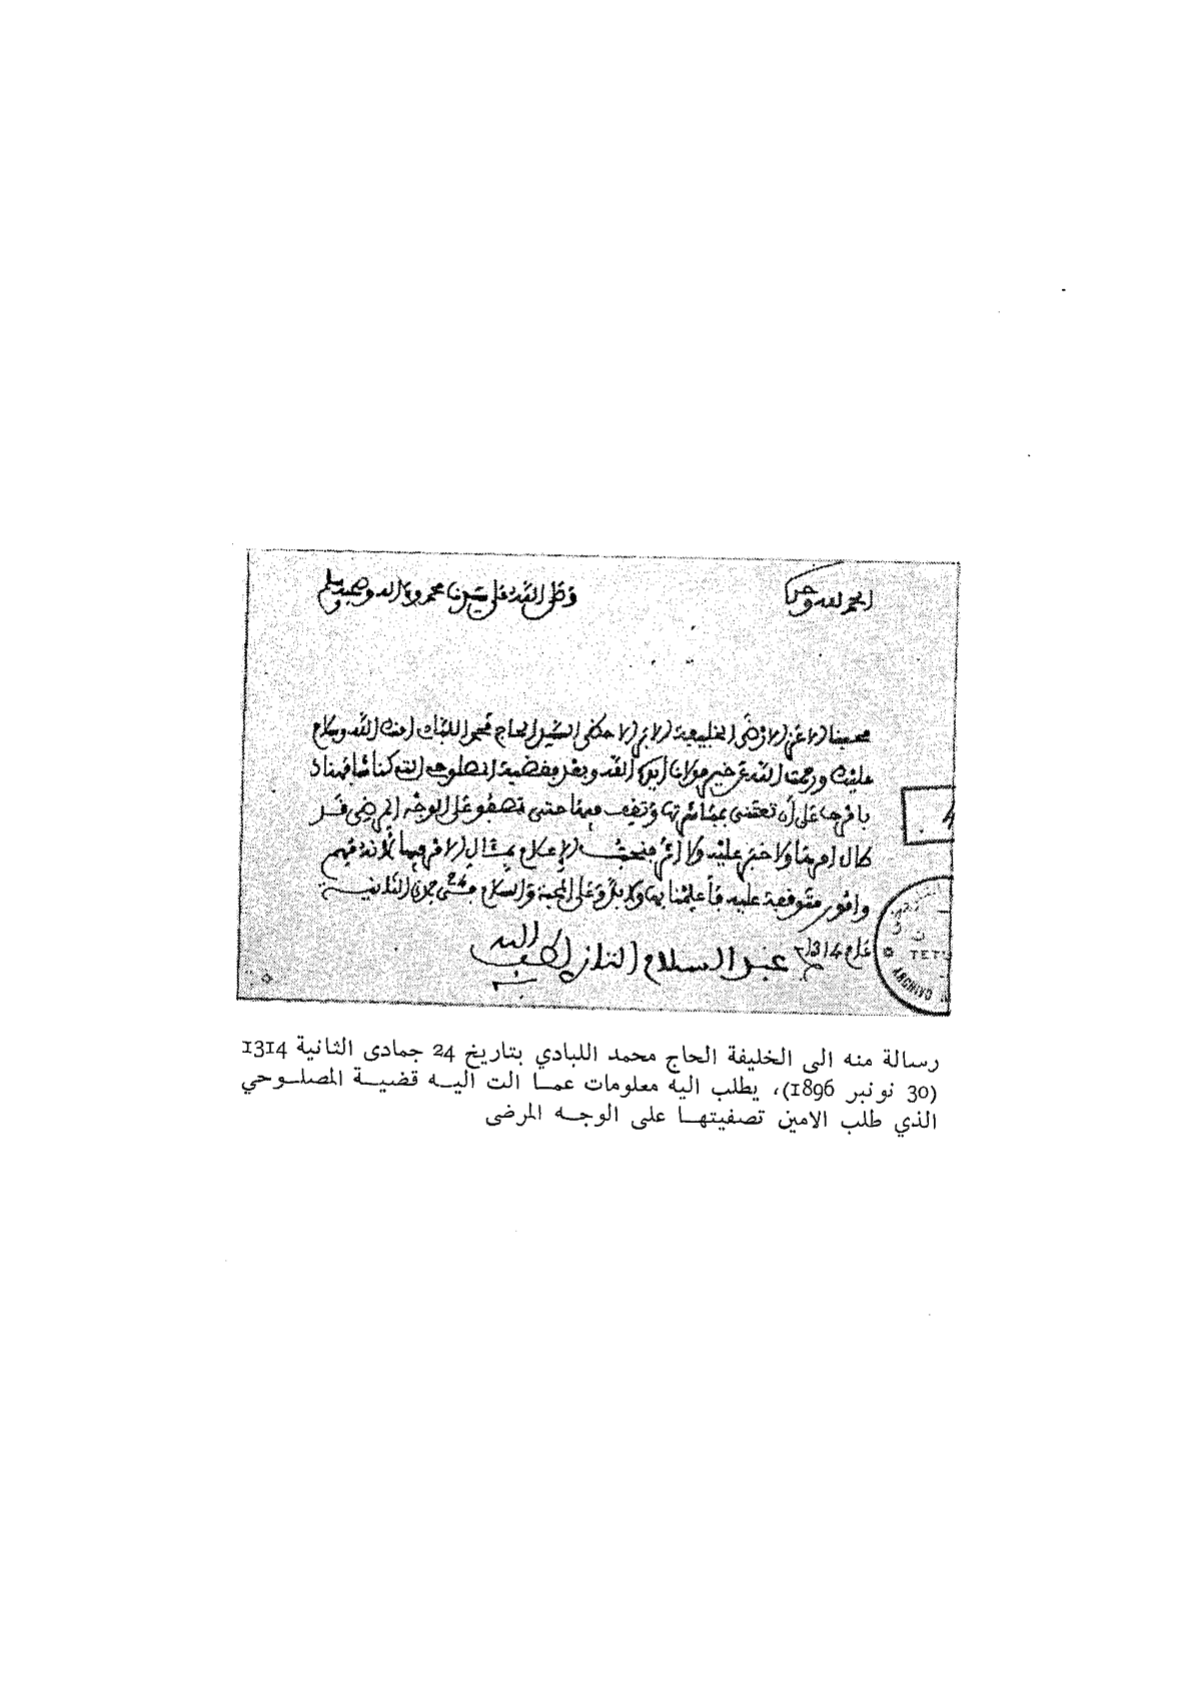 الحمد لله وحده
وصلى الله على سيدنا محمد وءاله وصحبه وسلم
محبنا الاعز الارضى الخليفة الابر الاحظى السيد الحاج محمد اللبادي امنك الله وسلام
عليك ورحمت الله عن خير مولانا ايده الله وبعد فقضية المصلوحي التي كنا شافهناك
بامرها على أن تعتني بمباشرتها وتقف فيها حتى تصفو على الوجه المرضي قد
طال امرها ولا خبر عليه ولا اثر فنحب الإعلام بمئال الامر فيها لانه
متوقفة عليه فأعلمنا بها ولا بد وعلى المحبة والسلام في 24 جمدى الثانية
عام 1314
عبد السلام التازي لطف الله به
TETU
ARCHIVO
رسالة منه الى الخليفة الحاج محمد اللبادي بتاريخ 24 جمادى الثانية 1314
(30 نونبر 1896)، يطلب اليه معلومات عما الت اليه قضية المصلوحي
الذي طلب الامين تصفيتها على الوجه المرضى